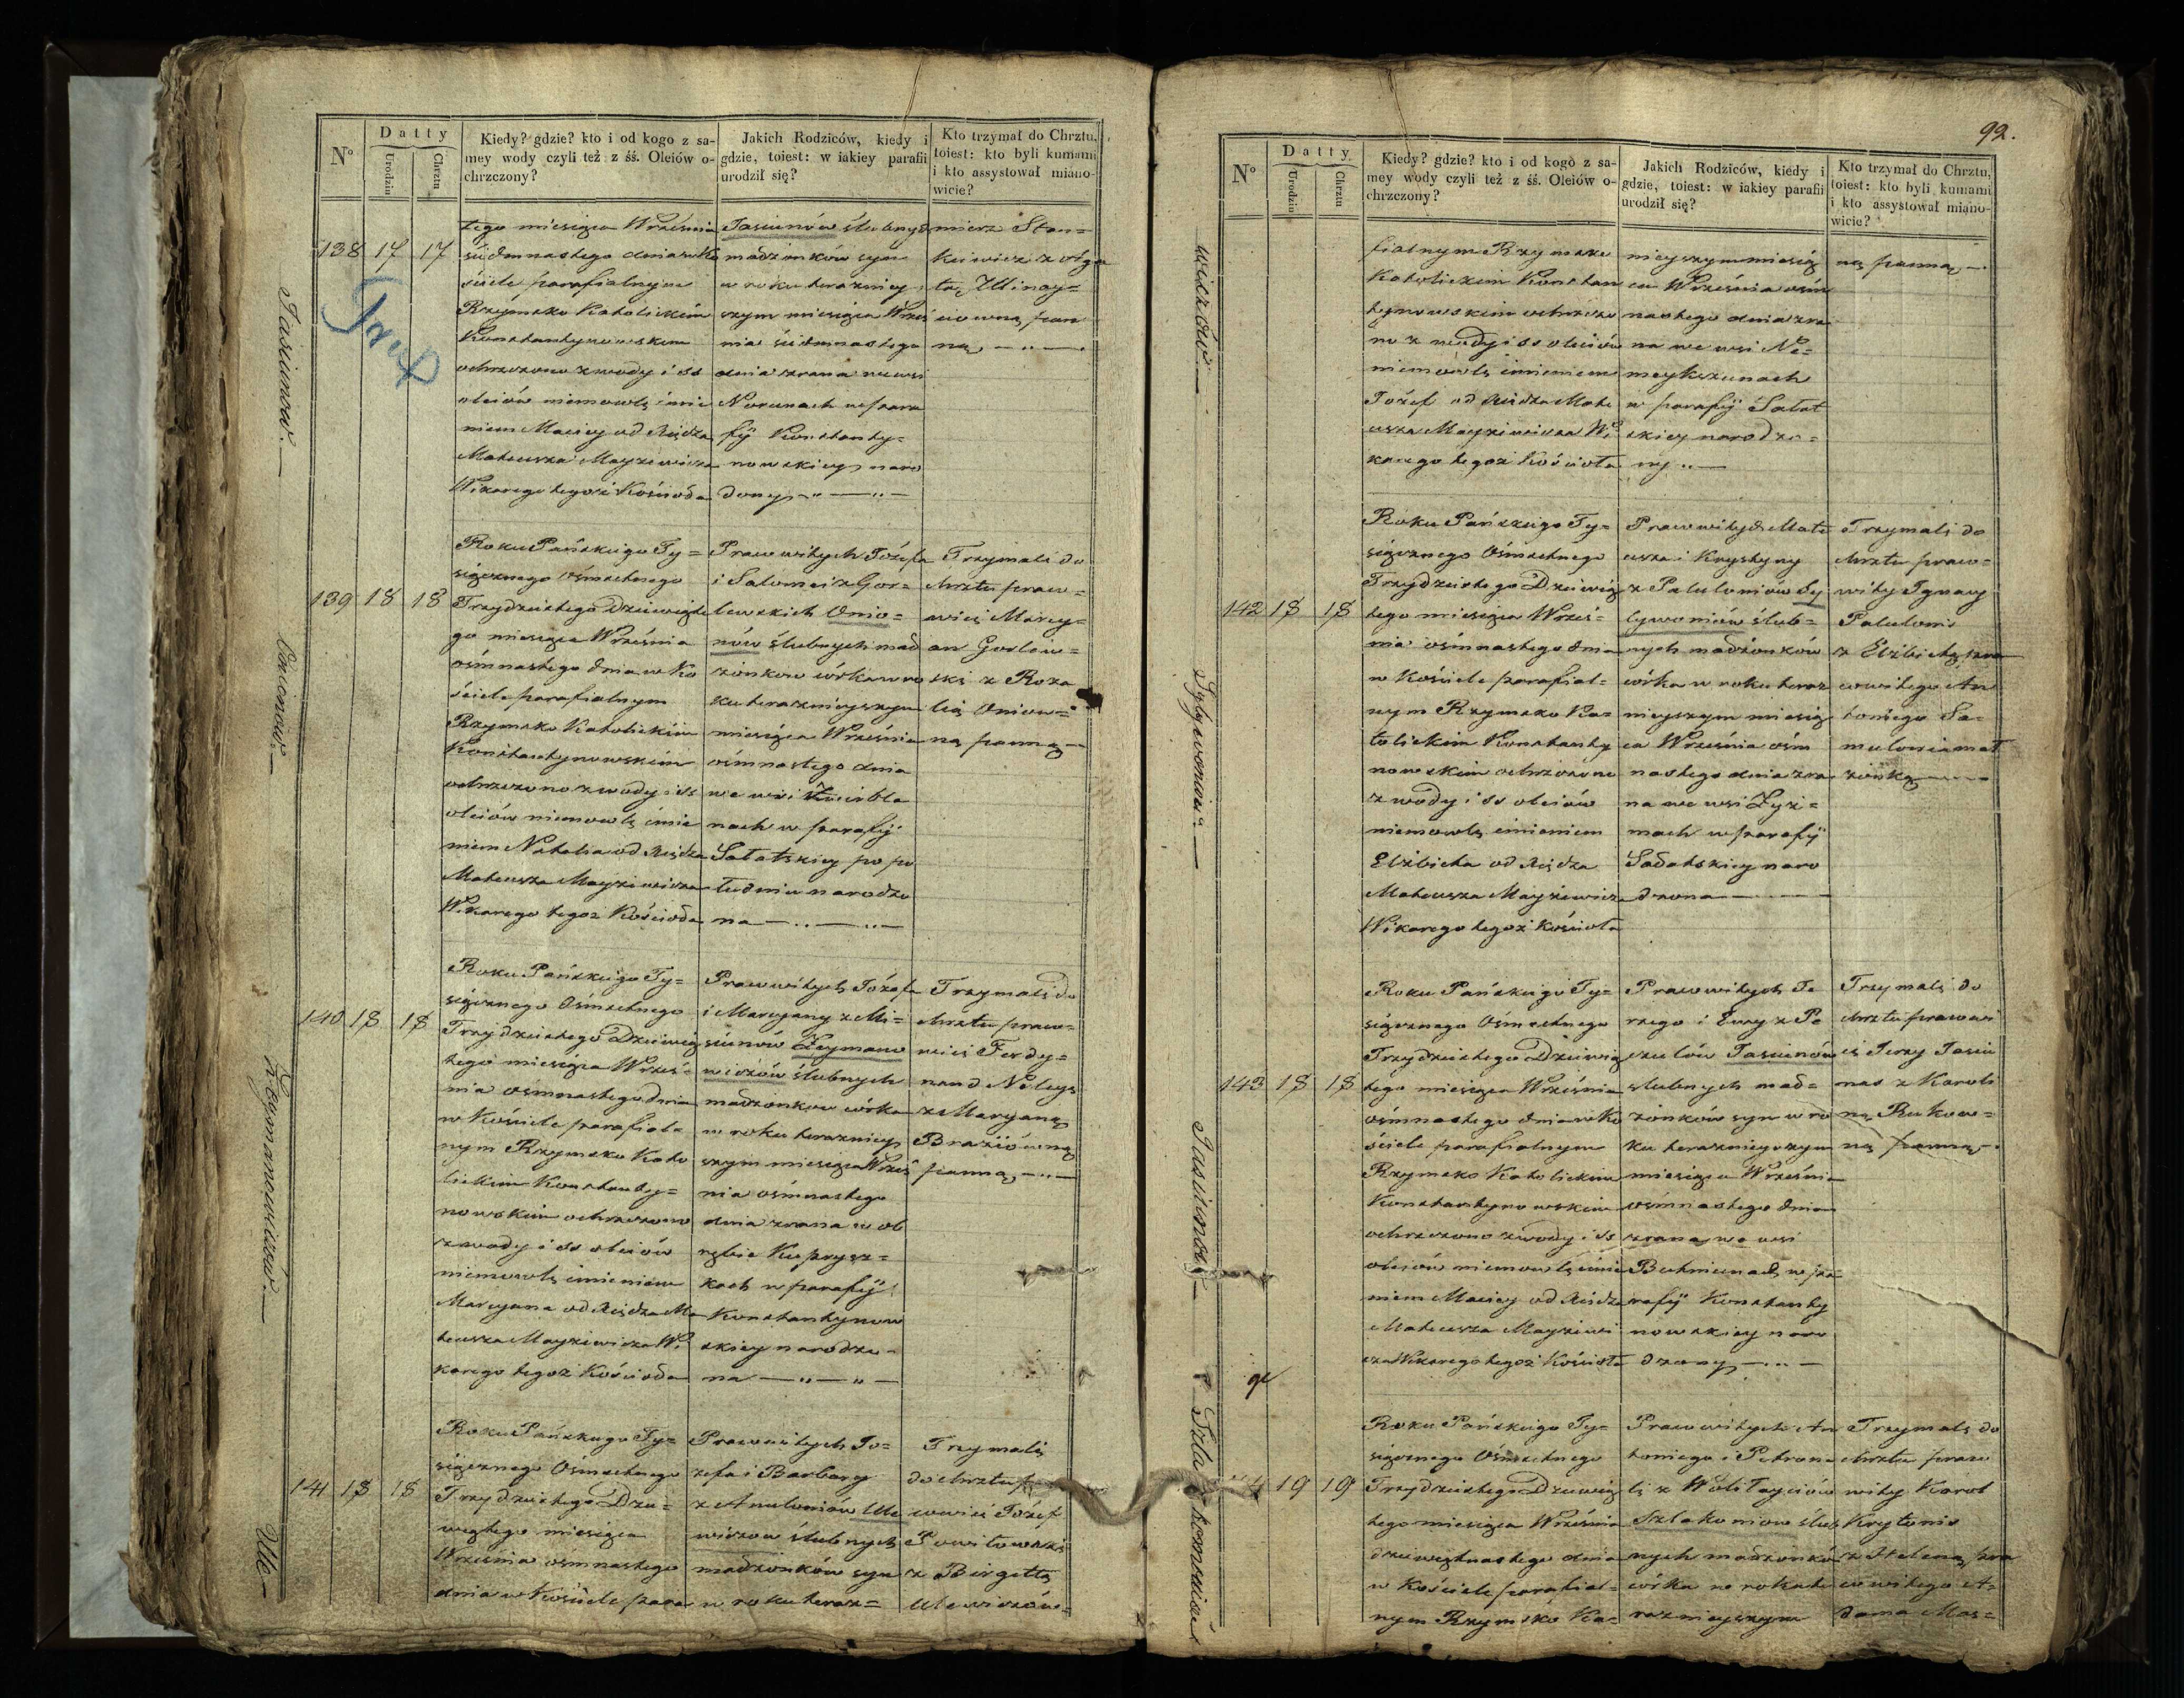 Nº
Datty
Urodzin
Chrztu
Kiedy? gdzie? kto i od kogo z sa-
mey wody czyli też z śś. Oleiów o-
chrzczony?
Jakich Rodziców, kiedy i
gdzie, toiest: w iakiey parafii
urodził się?
Kto trzymał do Chrztu,
toiest: kto byli kumami
i kto assystował miano-
wicie?
Jasiunow.
138 17 17
tego miesiąca Września
siedmnastego dnia w Ko
ściele parafialnym
Rzymsko Katolickim
Konstantynowskim
ochrzczono z wody i ss
oleiów niemowlę imie
niem Maciey od Xiędza
Mateusza Mayzewicza
Wikarego tegoż Kościoła
Jasiunów ślubnych
małżonków syn
w roku terazniey
szym miesiąca Wrześ
nia siedmnastego
dnia zrana we wsi
Norunach w para
fij Konstanty=
nowskiey naro
dzony
mierz Stan=
kiewicz z Aga
tą
ciowną pan
ną
Oniunow.
139 18 18
Roku Pańskiego Ty=
siącznego Ośmsetnego
Trzydziestego Dziewiąte
go miesiąca Września
ośmnastego dnia w Ko
ściele parafialnym
Rzymsko Katolickim
Konstantynowskim
ochrzczono z wody i ss
oleiów niemowlę imie
niem Natalia od Xiędza
Mateusza Mayzewicza
Wikarego tegoż Kościoła
Pracowitych Józefa
i Salomei z Gor=
lewskich Onio=
nów ślubnych mał
żonkow córka w ro
ku terazmieyszym
miesiąca Września
ośmnastego dnia
we wsi
nach w parafij
Sałatskiey po po
łudniu narodzo
na
Trzymali do
chrztu praco=
wici Marcy=
an Gorlew=
ski z Roza
lią Oniow=
ną panną
Zeymanowiczów.
140 18 18
Roku Pańskiego Ty=
siącznego Ośmsetnego
Trzydziestego Dziewią
tego miesiąca Wrześ=
nia osmnastego dnia
w Kościele parafial=
nym Rzymsko Kato
lickim Konstanty=
nowskim ochrzczono
z wody i ss oleiów
niemowlę imieniem
Maryana od Xiędza Ma
teusza Mayzewicza Wi
karego tegoż Kościoła
Pracowitych Józefa
i Maryany z Mi=
siunów Zeymano
wiczów ślubnych
małżonkow córka
w roku terazniey
szym miesiąca Wrześ
nia ośmnastego
dnia zrana w ob
rębie Kuprysz=
kach w parafij
Konstantynow
skiey narodzo=
na
Trzymali do
chrztu praco=
wici Ferdy=
nand Neleys
z Maryaną
Braziówną
panną
Ule=
141 18 18
Roku Pańskiego Ty=
siącznego Ośmsetnego
Trzydziestego Dzie=
wiątego miesiąca
Września ośmnastego
dnia w Kościele para
Pracowitych Jo=
zefa i Barbary
z Anuloniów Ule
wiczow ślubnych
małżonków syn
w roku teraz=
Trzymali
do chrztu pra
cowici Józef
Powitowski
z Birgittą
Ulewiczów=
92.
Nº
Datty
Urodzin
Chrztu
Kiedy? gdzie? kto i od kogo z sa-
mey wody czyli też z śś. Oleiów o-
chrzczony?
Jakich Rodziców, kiedy i
gdzie, toiest: w iakiey parafii
urodził się?
Kto trzymał do Chrztu,
toiest: kto byli kumami
i kto assystował miano-
wicie?
wiczow.
fialnym Rzymsko
Katolickim Konstan
tynowskim ochrzczo
no z wody i ss oleiów
niemowlę imieniem
Józef od Xiędza Mate
usza Mayzewicza Wi
karego tegoż Kościoła
nieyszym miesią
ca Września ośm
nastego dnia zra
na we wsi Ne=
meykszunach
w parafij Sałat
skiey narodzo=
ny
ną panną
Sylywoniów
142 18 18
Roku Pańskiego Ty=
siącznego Ośmsetnego
Trzydziestego Dziewią
tego miesiąca Wrześ=
nia ośmnastego dnia
w Kościele parafial=
nym Rzymsko Ka=
tolickim Konstanty
nowskim ochrzczono
z wody i ss oleiów
niemowlę imieniem
Elżbieta od Xiędza
Mateusza Mayzewicza
Wikarego tegoż Kościoła
Pracowitych Mate
usza i Krystyny
z Paluloniów Sy
lywoniów ślub=
nych małżonków
córka w roku teraz
nieyszym miesią
ca Września ośm
nastego dnia zra
na we wsi Zyzi=
mach w parafij
Sałatskiey naro
dzona
Trzymali do
chrztu praco=
wity Ignacy
Palulonis
z Elżbietą pra
cowitego An
toniego Sa=
mulonia mał
żonką
Jasiunow
143 18 18
Roku Pańskiego Ty=
siącznego Ośmsetnego
Trzydziestego Dziewią
tego miesiąca Września
ośmnastego dnia w Ko
ściele parafialnym
Rzymsko Katolickim
Konstantynowskim
ochrzczono z wody i ss
oleiów niemowlę imie
niem Maciey od Xiędza
Mateusza Mayzewi
cza Wikarego tegoż Kościoła
Pracowitych Je
rzego i Ewy z Pe
czulów Jasiunów
slubnych mał=
żonków syn w ro
ku teraznieyszym
miesiąca Września
ośmnastego dnia
zrana we wsi
Butniunach w pa
rafij Konstanty
nowskiey naro
dzony
Trzymali do
chrztu pracowi
ci Jerzy Jasiu
nas z Karoli
ną Rukow=
ną panną
19 19
Roku Pańskiego Ty=
siącznego Ośmsetnego
Trzydziestego Dziewią
tego miesiąca Września
dziewiętnastego dnia
w Kościele parafial=
nym Rzymsko Ka=
Pracowitych An
toniego i Petrone
li z Woli Tayciów
Szlakoniow ślub
nych małżonków
córka w roku te
raznieyszym
Trzymali do
chrztu praco
wity Karol
Krytonis
z Heleną pra
cowitego A=
dama Mas=